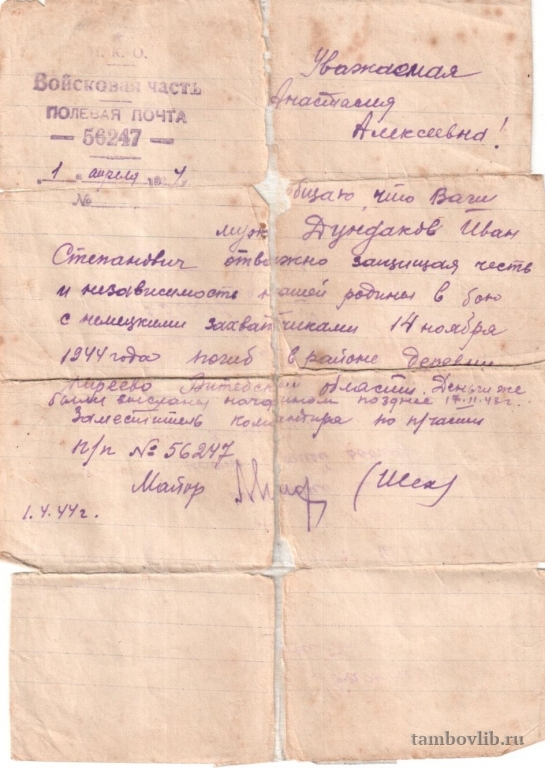 Н. К. О.
Войсковая часть
ПОЛЕВАЯ ПОЧТА
— 56247 —
„1" апреля 194 4
№
Уважаемая
Анастасия
Алексеевна!
общаю, что Ваш
муж Дундаков Иван
Степанович отважно защищая честь
и независимость нашей родины в бою
с немецкими захватчиками 14 ноября
1944 года погиб в районе деревни
Витебской области. Деньги же
были высланы начфином позднее 17.11.43 г.
Заместитель командира по
п/п № 56247
Майор (Шех)
1.4.44 г.
tambovlib.ru